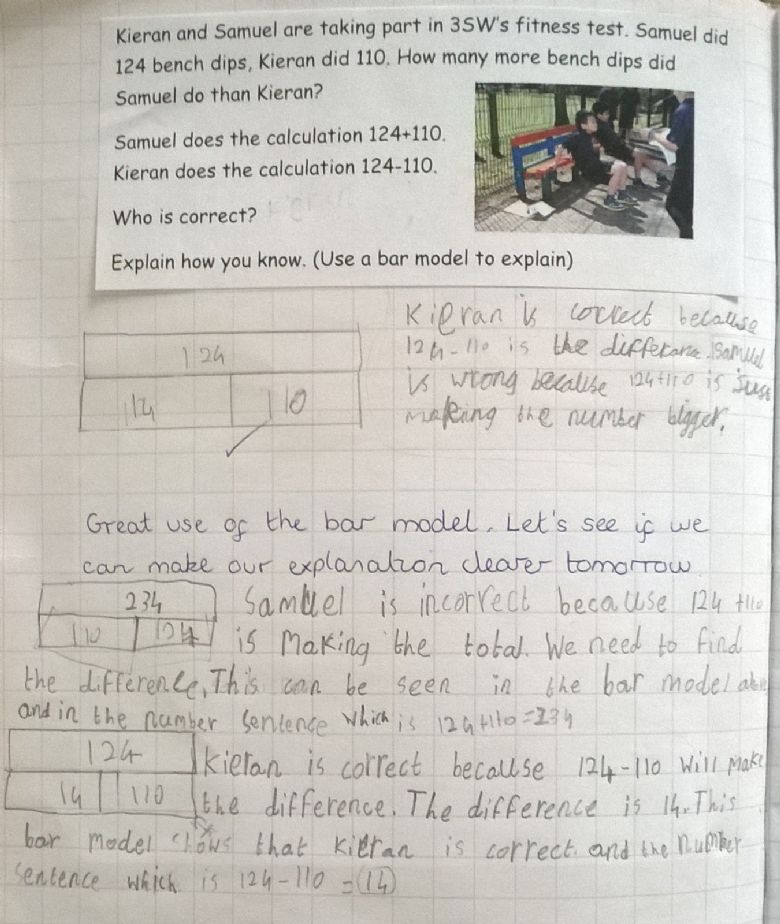 Kieran and Samuel are taking part in 3SW's fitness test. Samuel did
124 bench dips, Kieran did 110. How many more bench dips did
Samuel do than Kieran?
Samuel does the calculation 124+110.
Kieran does the calculation 124-110.
Who is correct?
Explain how you know. (Use a bar model to explain)
124
14 110
Kieran is correct because
124-110 is the differance. Samuel
is wrong because 124+110 is
making the number bigger.
Great use of the bar model. Let's see if we
can make our explanation clearer tomorrow
234
110 124
Samuel is incorrect because 124 +110
is making the total. We need to find
the difference. This can be seen in the bar model
and in the number sentence which is 124+110=234
124
14 110
Kieran is correct because 124-110 will make
the difference. The difference is 14. This
bar model shows that Kieran is correct and the number
sentence which is 124-110=14